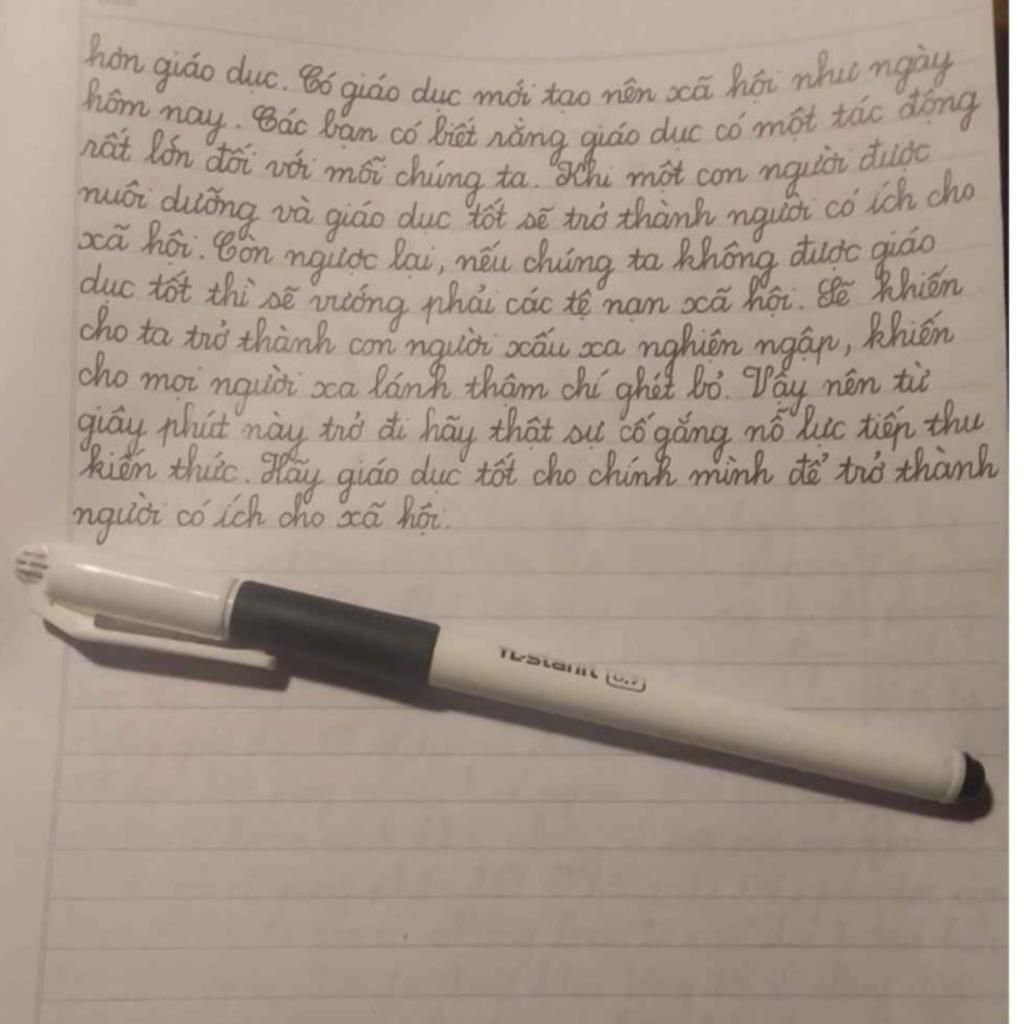 hơn giáo dục. Có giáo dục mới tạo nên xã hội như ngày
hôm nay. Các bạn có biết rằng giáo dục có một tác động
rất lớn đối với mỗi chúng ta. Khi một con người được
nuôi dưỡng và giáo dục tốt sẽ trở thành người có ích cho
xã hội. Còn ngược lại, nếu chúng ta không được giáo
dục tốt thì sẽ vướng phải các tệ nạn xã hội. Sẽ khiến
cho ta trở thành con người xấu xa nghiện ngập, khiến
cho mọi người xa lánh thậm chí ghét bỏ. Vậy nên từ
giây phút này trở đi hãy thật sự cố gắng nỗ lực tiếp thu
kiến thức. Hãy giáo dục tốt cho chính mình để trở thành
người có ích cho xã hội.